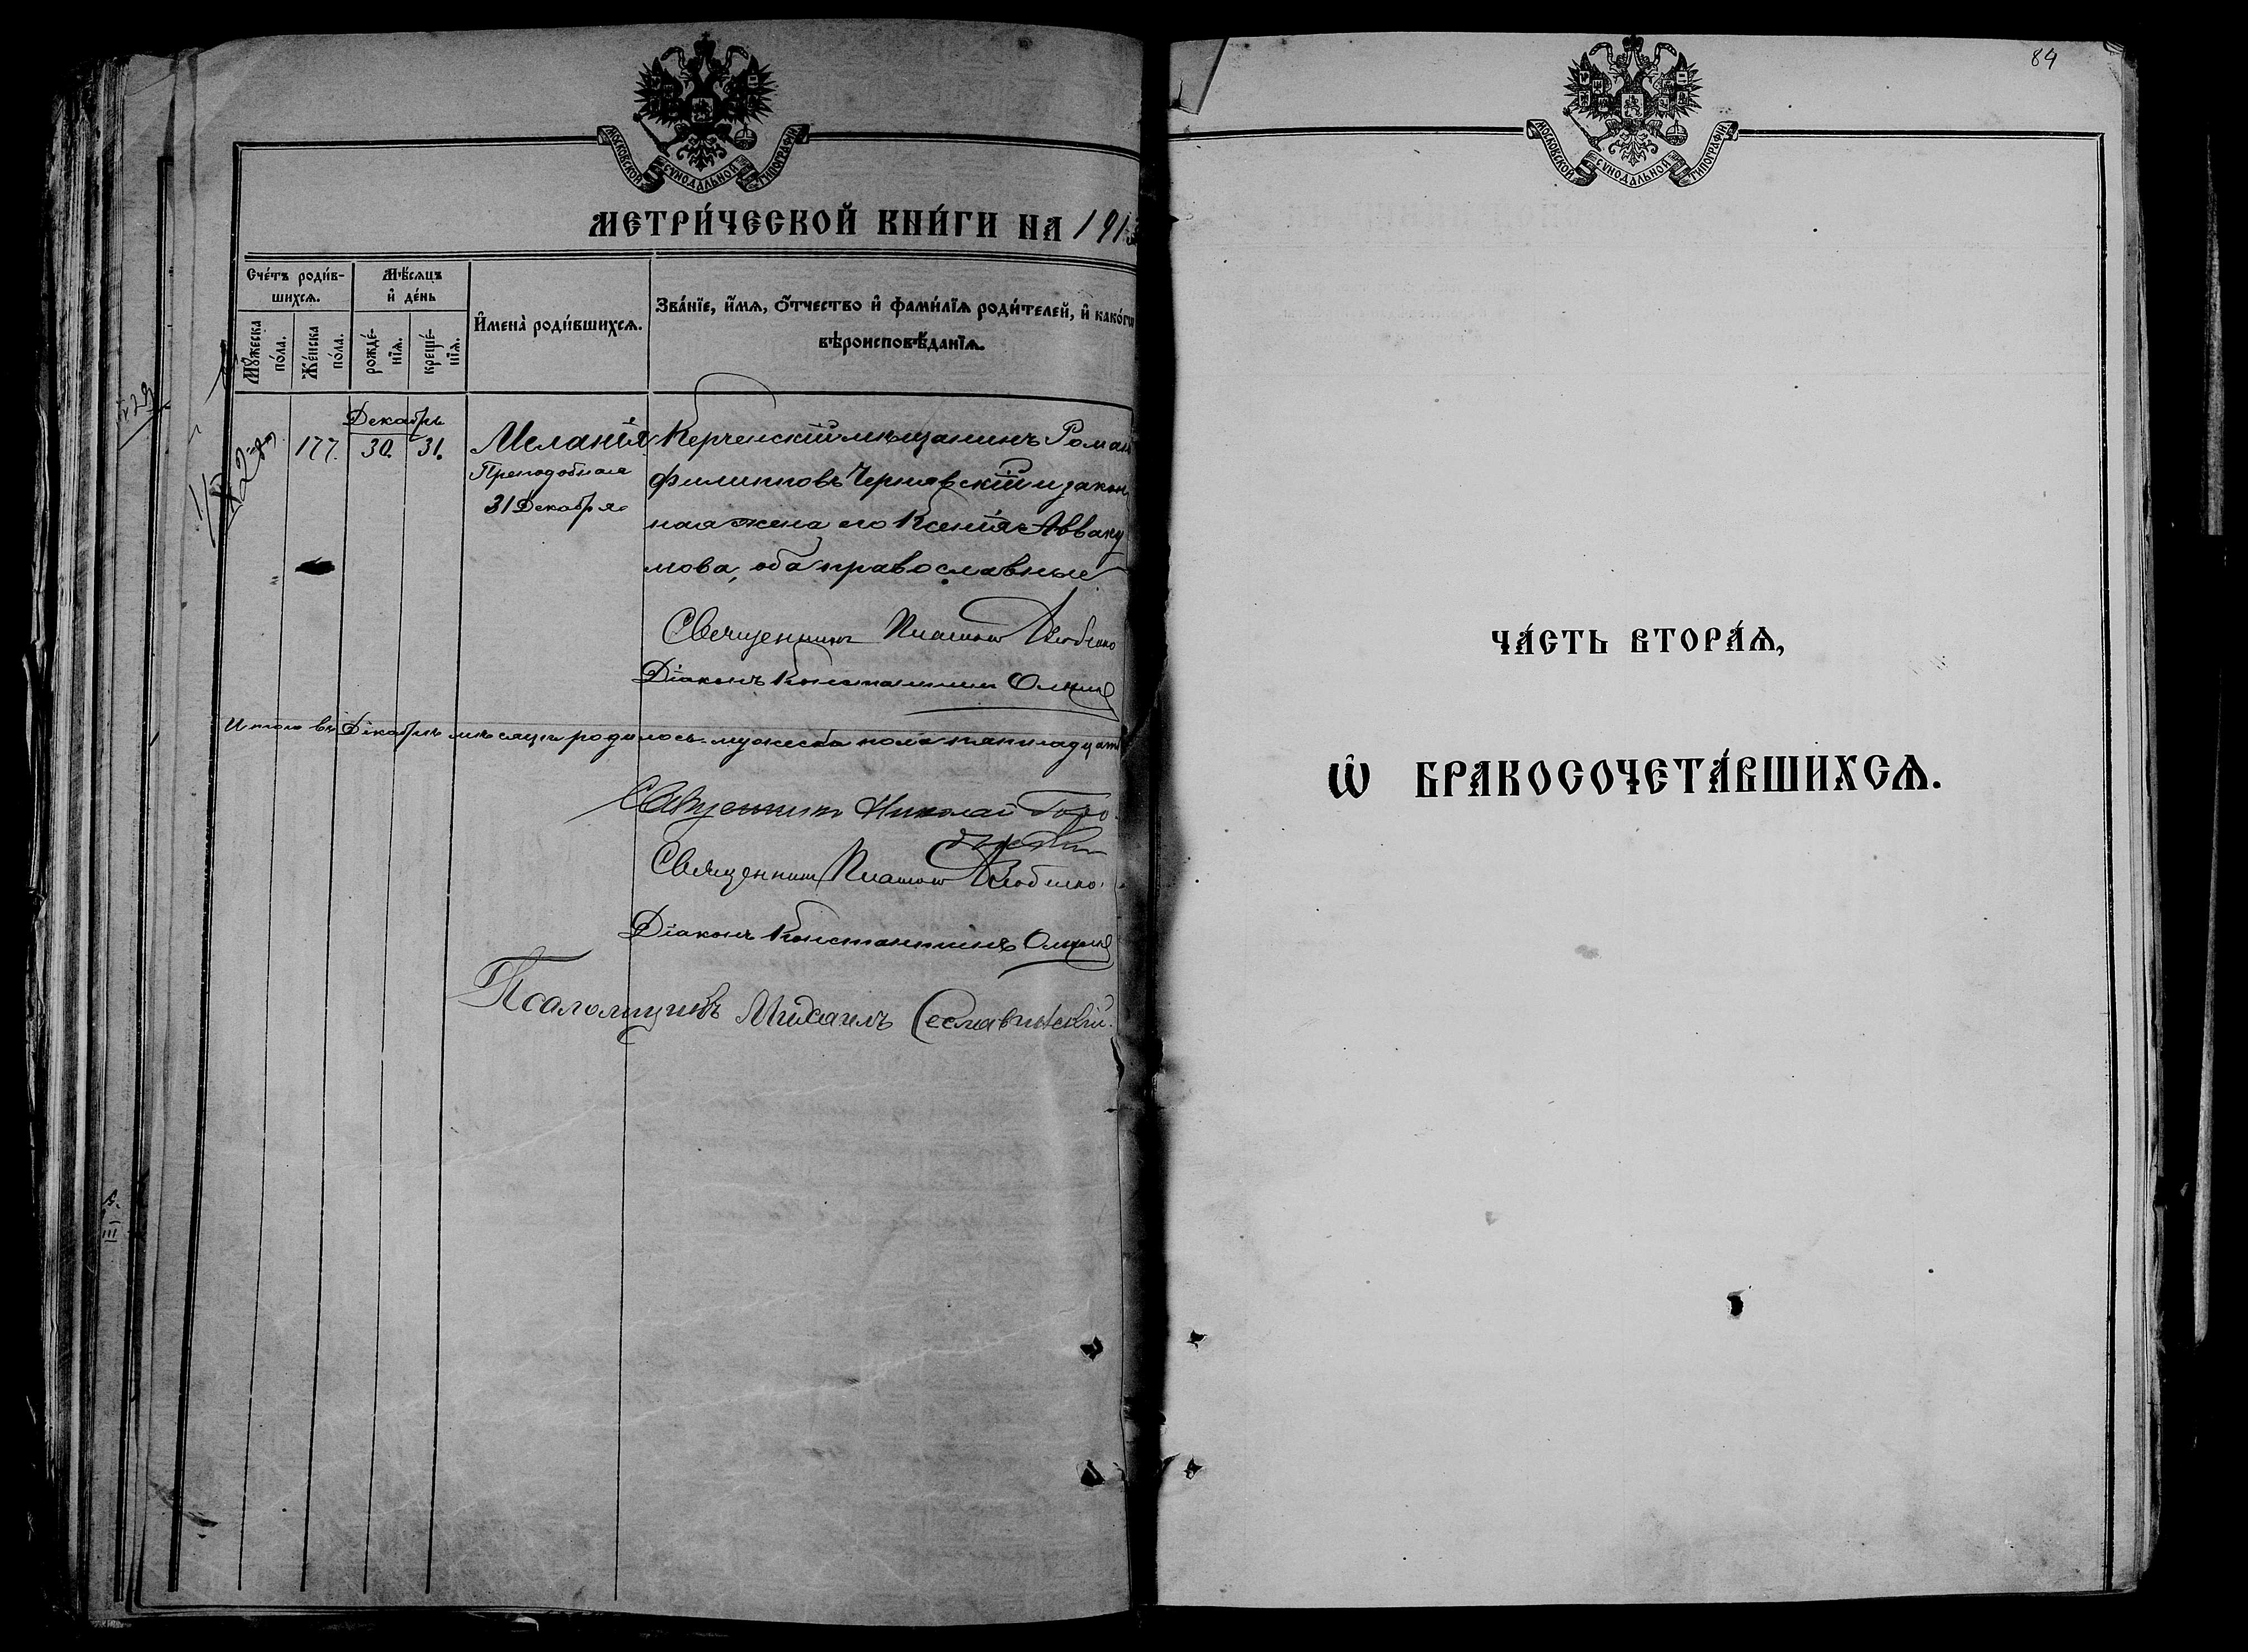 МОСКОВСКОЙ СѴНОДАЛЬНОЙ ТИПОГРАФІИ
МЕТРИ́ЧЕСКОЙ КНИ́ГИ НА 1913
Сче́тъ роди́в-
шихсѧ.
Мꙋ́жеска
по́ла.
Же́нска
по́ла.
Мѣ́сѧцъ
и҆ де́нь
рожде́-
нїѧ.
креще́-
нїѧ.
И҆мена̀ роди́вшихсѧ.
Зва́нїе, и҆́мѧ, ѻ҆́тчество и҆ фами́лїѧ роди́телей, и҆ како́гѡ
вѣроисповѣ́данїѧ.
Декабрь
177. 30. 31.
Меланія
Преподобная
31 Декабря
Керченскій мѣщанинъ Роман
Филипповъ Чернявскій и закон
ная жена его Ксенія Авваку
мова, оба православные
Священникъ
Діаконъ Константинъ
Итого въ Декабрѣ мѣсяцѣ родилось мужеска пола пятнадцать
Священникъ Николай
Священникъ
Діаконъ Константинъ
Псаломщикъ Михаилъ Сеславинскій.
84
МОСКОВСКОЙ СѴНОДАЛЬНОЙ ТИПОГРАФІИ
ЧА́СТЬ ВТОРА́Ѧ,
Ѡ҆ БРАКОСОЧЕТА́ВШИХСѦ.